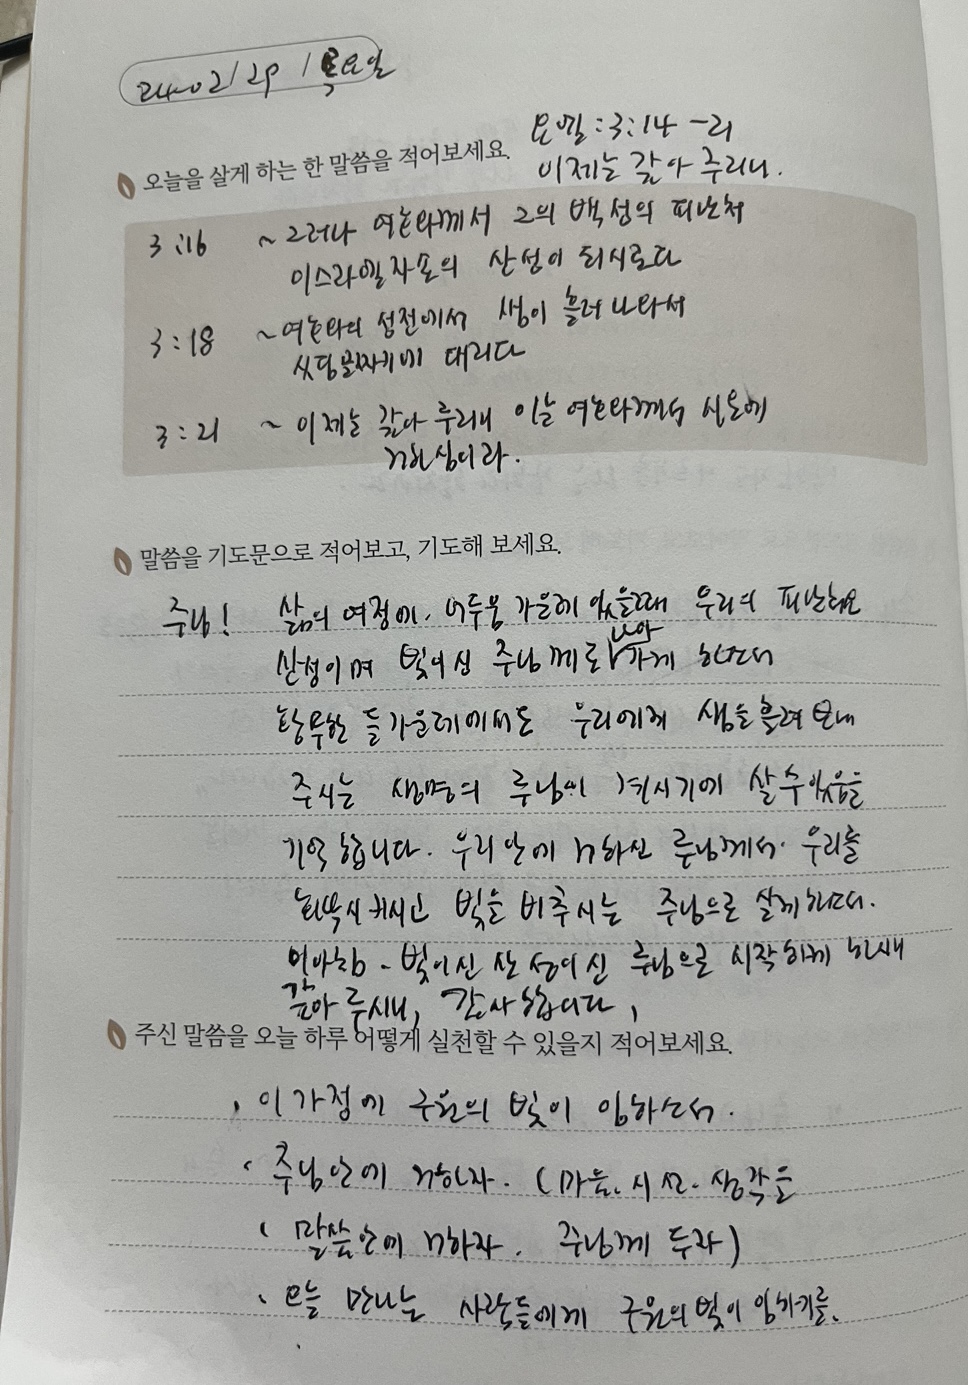 24-02/29 / 목요일
요엘:3:14-21
오늘을 살게 하는 한 말씀을 적어보세요.
이제는 갚아 주리니.
3:16 ~그러나 여호와께서 그의 백성의 피난처
이스라엘자손의 산성이 되시로다
3:18 ~여호와의 성전에서 샘이 흘러 나와서
싯딤골짜기에 대리다
3:21 ~이제는 갚아 주리니 이는 여호와께서 시온에
거하심이라.
말씀을 기도문으로 적어보고, 기도해 보세요.
주님! 삶의 여정에, 어두움 가운데 있을때 우리의 피난처요
산성이며 빛이신 주님께로 나아가게 하소서
황무한 들가운데에서도 우리에게 샘을 흘려 보내
주시는 생명의 주님이 계시기에 살수있음을
기억합니다. 우리 안에 거하신 주님께서 우리를
회복시키시고 빛을 비추시는 주님으로 살게하소서.
빛이신 산성이신 주님으로 시작하게 하시며
갚아 주시니, 감사합니다,
주신 말씀을 오늘 하루 어떻게 실천할 수 있을지 적어보세요.
, 이 가정에 구원의 빛이 임하소서.
, 주님안에 거하자. (마음. 시선. 생각을
( 말씀안에 거하자. 주님께 두자)
, 오늘 만나는 사람들에게 구원의 빛이 임하기를.